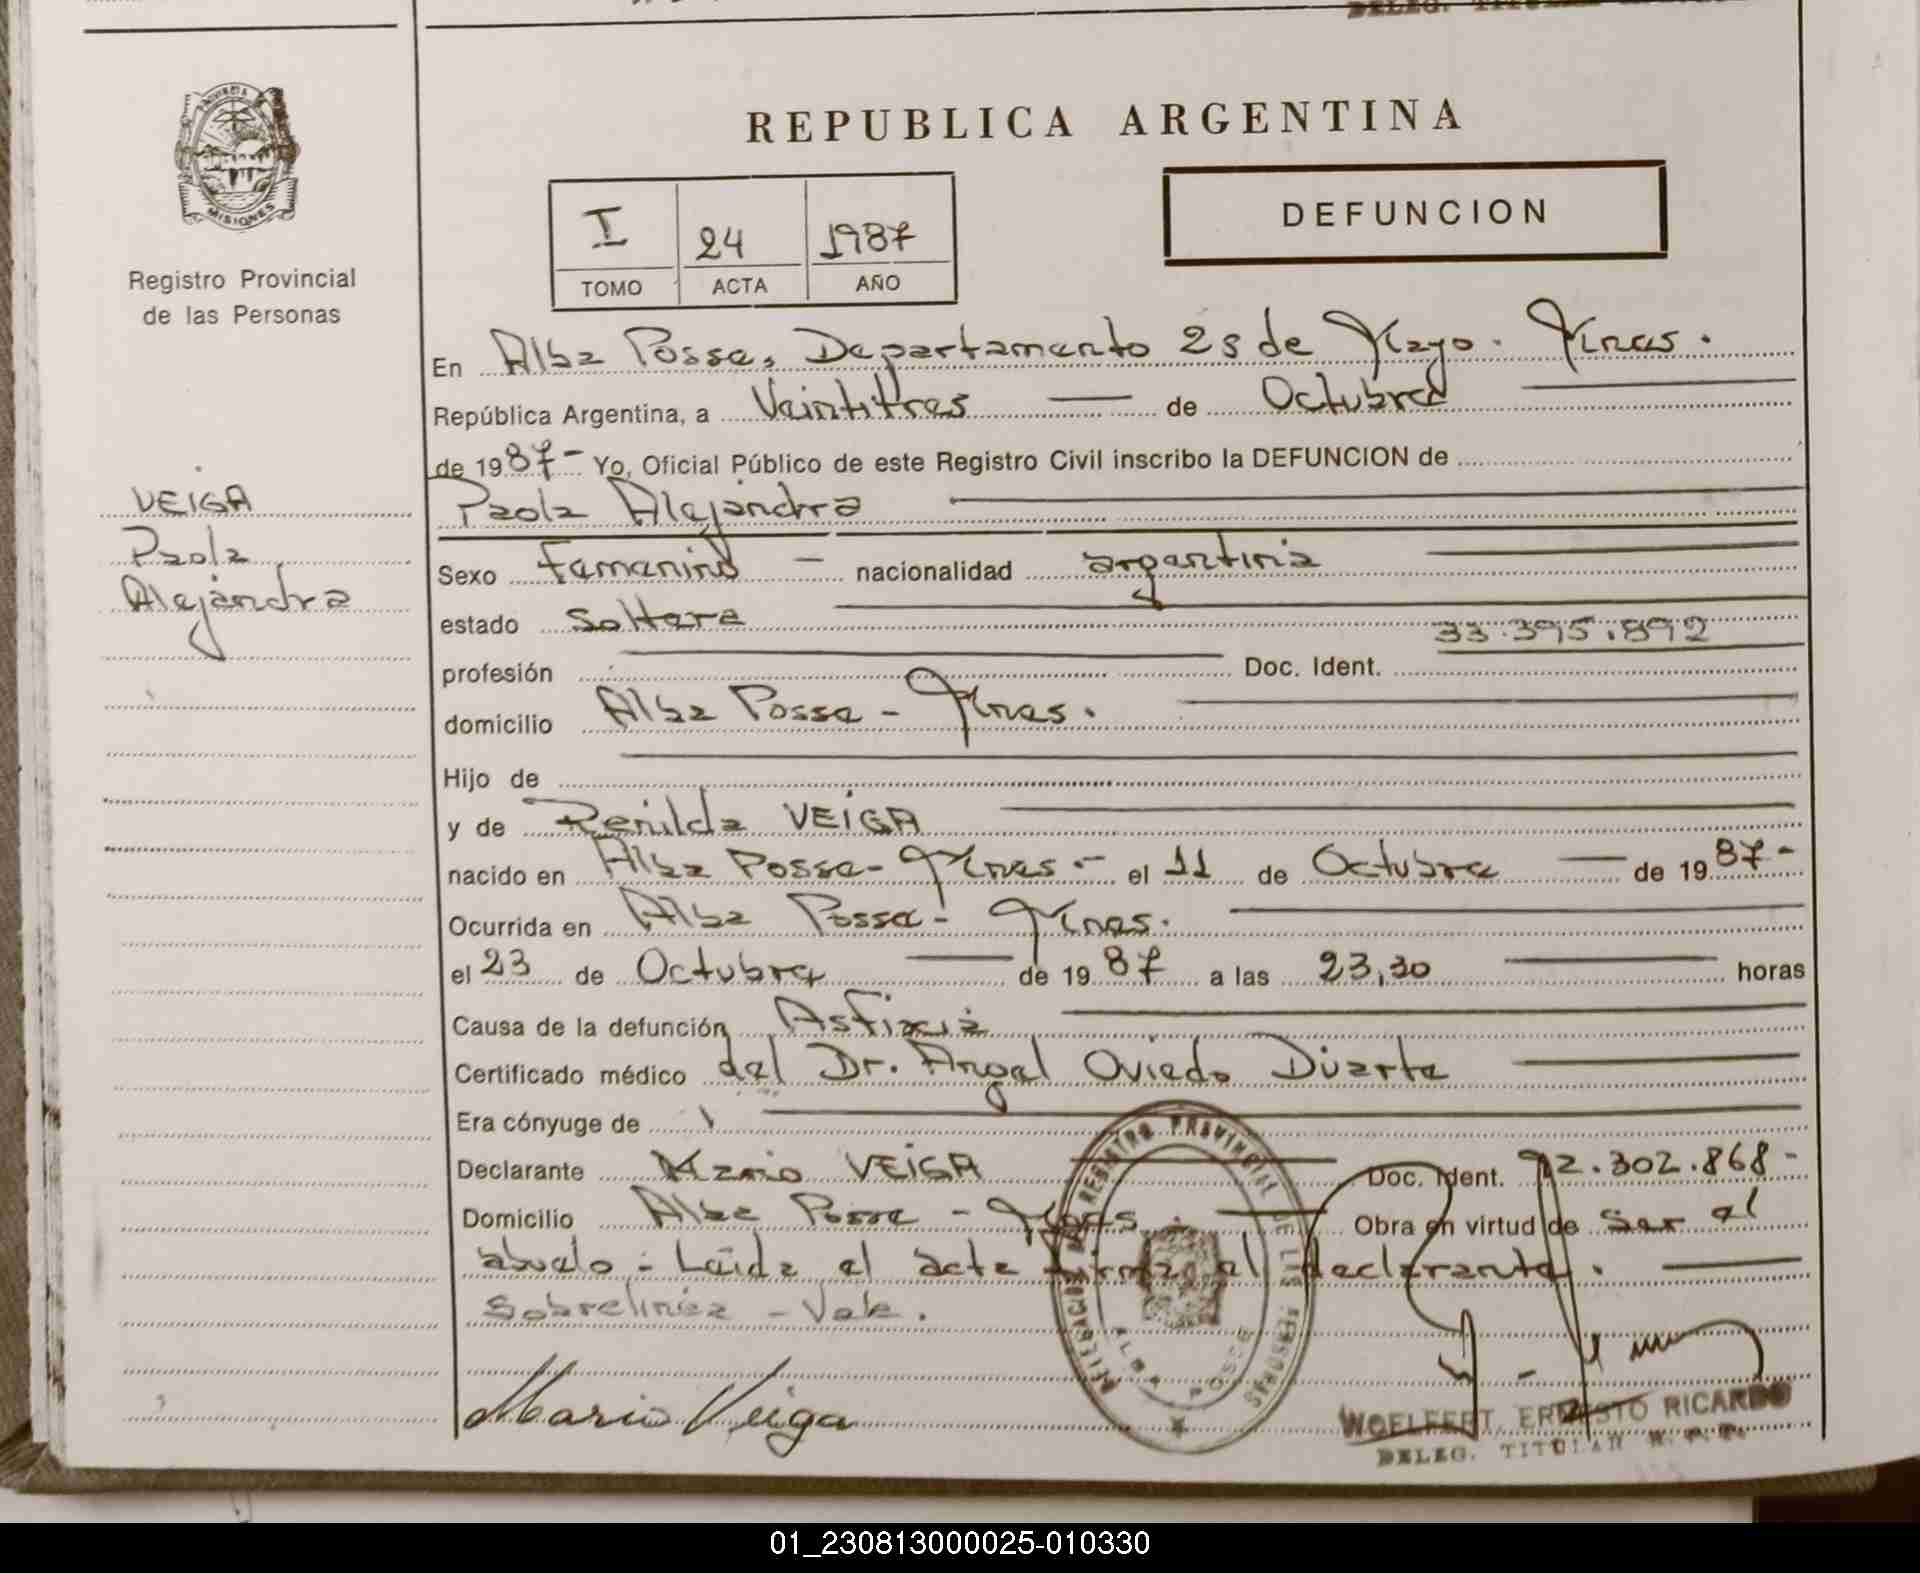 PROVINCIA DE
MISIONES
Registro Provincial
de las Personas
VEIGA
Paola
Alejandra
REPUBLICA ARGENTINA
I 24 1987
TOMO ACTA AÑO
DEFUNCION
En Alba Posse, Departamento 25 de Mayo. Mnes.
República Argentina, a Veintitres de Octubre
de 1987- Yo, Oficial Público de este Registro Civil inscribo la DEFUNCION de
Paola Alejandra
Sexo Femenino - nacionalidad argentina
estado Soltera
33.395.892
profesión Doc. Ident.
domicilio Alba Posse - Mnes.
Hijo de
y de Renilda VEIGA
nacido en Alba Posse - Mnes - el 11 de Octubre de 1987-
Ocurrida en Alba Posse - Mnes.
el 23 de Octubre de 1987 a las 23,30 horas
Causa de la defunción Asfixia
Certificado médico del Dr. Angel Oviedo Duarte
Era cónyuge de
Declarante Mario VEIGA Doc. Ident. 92.302.868-
Domicilio Alba Posse - Mnes. Obra en virtud de ser el
abuelo - Leida el acta firma el declarante.
Sobrelinea - Vale.
Mario Veiga
REGISTRO PROVINCIAL DE LAS PERSONAS
DELEGACION
ALBA POSSE
WOELFERT, ERNESTO RICARDO
DELEG. TITULAR R. P. P.
01_230813000025-010330